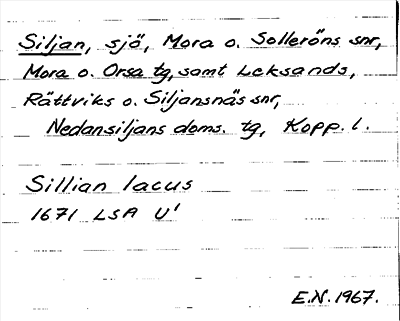 Siljan, sjö, Mora o. Solleröns snr,
Mora o. Orsa tg, samt Leksands,
Rättviks o. Siljansnäs snr,
Nedansiljans doms. tg, Kopp. l.
Sillian lacus
1671 LSA U'
E.N. 1967.